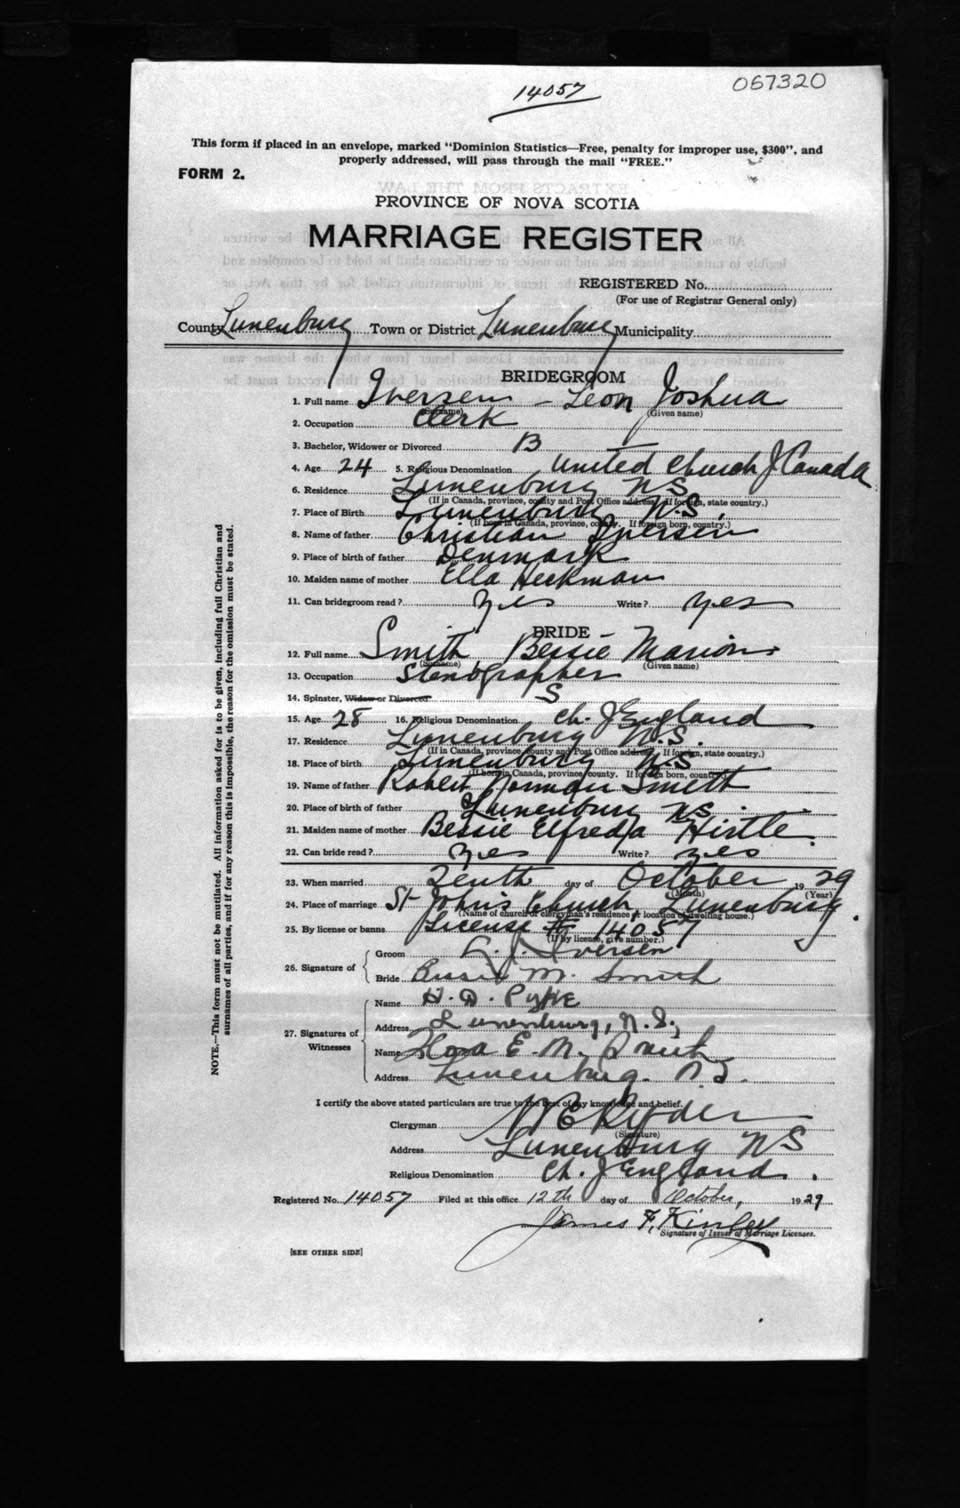 14057
067320
This form if placed in an envelope, marked "Dominion Statistics—Free, penalty for improper use, $300", and
properly addressed, will pass through the mail "FREE."
FORM 2.
PROVINCE OF NOVA SCOTIA
MARRIAGE REGISTER
REGISTERED No.
(For use of Registrar General only)
County Lunenburg Town or District Lunenburg Municipality
BRIDEGROOM
1. Full name Iversen - Leon Joshua
(Surname) (Given name)
2. Occupation Clerk
3. Bachelor, Widower or Divorced B
4. Age 24 5. Religious Denomination United Church of Canada
6. Residence Lunenburg NS
(If in Canada, province, county and Post Office address. If foreign, state country.)
7. Place of Birth Lunenburg N.S.
(If born in Canada, province, county. If foreign born, country.)
8. Name of father Christian Iversen
9. Place of birth of father Denmark
10. Maiden name of mother Ella Heckman
11. Can bridegroom read? Yes Write? Yes
BRIDE -
12. Full name Smith Bessie Marion
(Surname) (Given name)
13. Occupation Stenographer
14. Spinster, Widow or Divorced S
15. Age 28 16. Religious Denomination Ch. of England
17. Residence Lunenburg N.S.
(If in Canada, province, county and Post Office address. If foreign, state country.)
18. Place of birth Lunenburg N.S
(If born in Canada, province, county. If foreign born, country.)
19. Name of father Robert Norman Smith
20. Place of birth of father Lunenburg NS.
21. Maiden name of mother Bessie Elfreda Hirtle
22. Can bride read? Yes Write? Yes
23. When married Tenth day of October 1929
(Month) (Year)
24. Place of marriage St Johns Church, Lunenburg.
(Name of church or clergyman's residence or location of dwelling house.)
25. By license or banns License # 14057
(If by license, give number.)
26. Signature of
Groom L. J. Iversen
Bride Bessie M. Smith
27. Signatures of Witnesses
Name H. D. Pyke
Address Lunenburg, N.S.,
Name E. M. Smith
Address Lunenburg. N.S.
I certify the above stated particulars are true to the best of my knowledge and belief.
Clergyman W E Ryder
(Signature)
Address Lunenburg NS
Religious Denomination Ch. of England.
Registered No. 14057 Filed at this office 12th day of October, 1929
James F. Kinley
Signature of Issuer of Marriage Licenses.
[SEE OTHER SIDE]
NOTE.—This form must not be mutilated. All information asked for is to be given, including full Christian and
surnames of all parties, and if for any reason this is impossible, the reason for the omission must be stated.